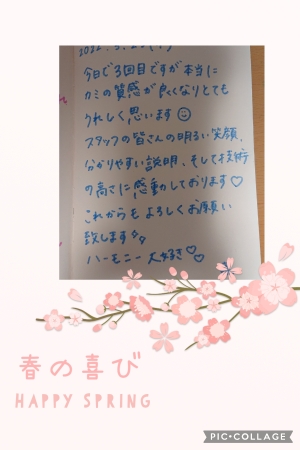 今日で3回目ですが本当に
カミの質感が良くなりとても
うれしく思います
スタッフの皆さんの明るい笑顔、
分かりやすい説明、そして技術
の高さに感動しております♡
これからもよろしくお願い
致します
ハーモニー大好き♡♡
春の喜び
HAPPY SPRING
PIC•COLLAGE